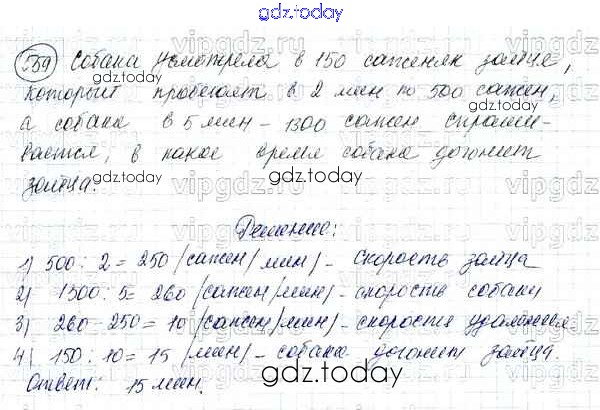 gdz.today
559 Собака усмотрела в 150 саженях зайца,
который пробегает в 2 мин по 500 сажен,
а собака в 5 мин – 1300 сажен спраши-
вается, в какое время собака догонит
зайца.
gdz.today
Решение:
1) 500 : 2 = 250 /сажен/мин/ – скорость зайца
2) 1300 : 5 = 260 /сажен/мин/ – скорость собаки
3) 260 - 250 = 10 /сажен/мин/ – скорость удаления
4) 150 : 10 = 15 /мин/ – собака догонит зайца.
Ответ: 15 мин.
gdz.today